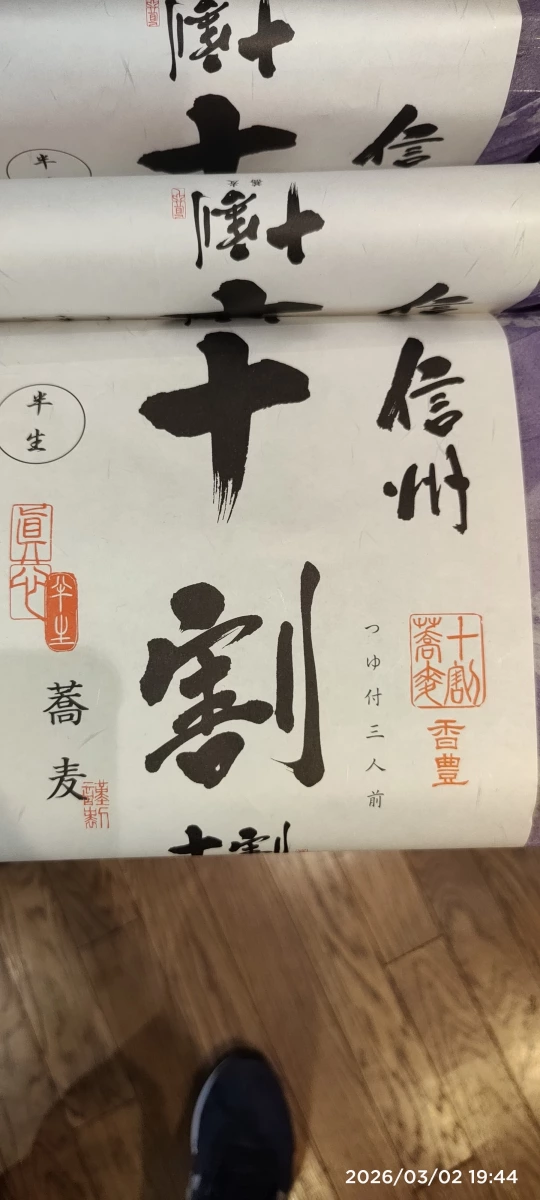 信州
十割
つゆ付三人前
十割
蕎麦
香豊
半生
眞
半生
蕎麦
謹製
十割
十割
十
信
半
十割
信
十割
2026/03/02 19:44